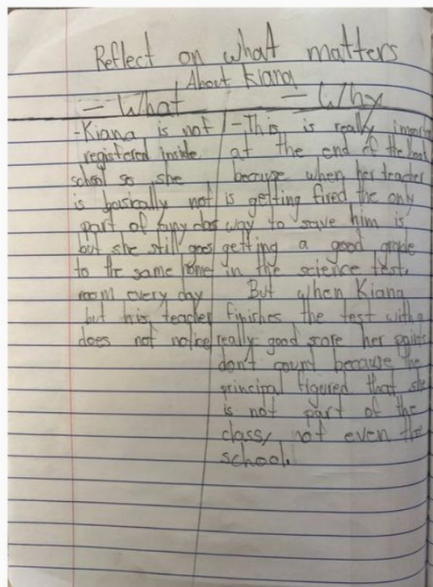 Reflect on what matters
About Kiana
- What
- Why
-Kiana is not
registered inside
school so she
is basically not
part of any class
but she still goes
to the same home
room every day
but his teacher
does not notice
-This is really importa
at the end of the book
because when her teacher
is getting fired the only
way to save him is
getting a good grade
in the science test.
But when Kiana
finishes the test with a
really good score her points
don't count because the
principal figured that she
is not part of the
class, not even the
school.